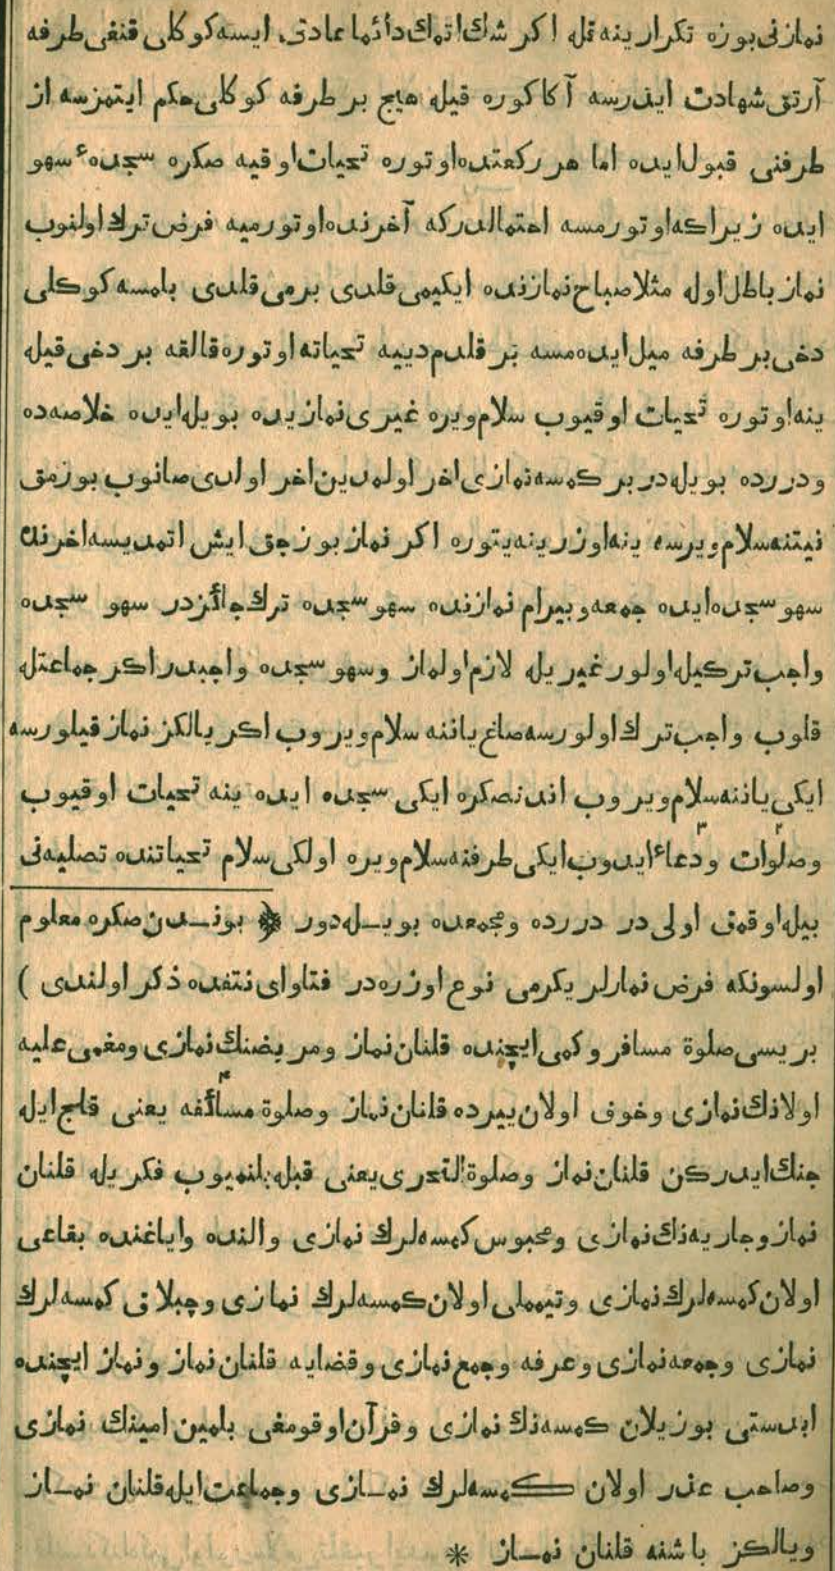 نمازنی بوزه تكرار ینه قله اكر شك اتمك دائما عادتی ایسه كوكلی قنغی طرفه
آرتق شهادت ایدرسه آكا كوره قیله هیچ بر طرفه كوكلی حكم ایتمزسه از
طرفنی قبول ایده اما هر ركعتده اوتوره تحیات اوقیه صكره سجدهٔ سهو
ایده زیرا كه اوتورمسه احتمالدركه آخرنده اوتورمیه فرض ترك اولنوب
نماز باطل اوله مثلا صباح نمازنده ایكیمی قلدی برمی قلدی بلمسه كوكلی
دخی بر طرفه میل ایده مسه بر قلدم دییه تحیاته اوتوره قالقه بر دخی قیله
ینه اوتوره تحیات اوقیوب سلام ویره غیری نمازیده بویله ایده خلاصه ده
ودررده بویله در بر كمسه نمازی اخر اولمدین اخر اولدی صانوب بوزمق
نیتنه سلام ویرسه ینه اوزرینه یتوره اكر نماز بوزجق ایش اتمدیسه اخرنده
سهو سجده ایده جمعه و بیرام نمازنده سهو سجده ترك جائزدر سهو سجده
واجب تركیله اولور غیریله لازم اولماز وسهو سجده واجبدر اكر جماعتله
قلوب واجب ترك اولورسه صاغ یاننه سلام ویروب اكر یالكز نماز قیلورسه
ایكی یاننه سلام ویروب اندنصكره ایكی سجده ایده ینه تحیات اوقیوب
وصلوات ودعاء ایدوب ایكی طرفنه سلام ویره اولكی سلام تحیاتنده تصلیه نی
بیله اوقمق اولی در دررده ومجمعده بویله دور ❁ بوندن صكره معلوم
اولسونكه فرض نمازلر یكرمی نوع اوزره در فتاوای نتفده ذكر اولندی )
بریسی صلوة مسافر و كمی ایچنده قلنان نماز ومریضنك نمازی ومغمی علیه
اولانك نمازی وخوف اولان ییرده قلنان نماز وصلوة مسائفه یعنی قلج ایله
جنك ایدركن قلنان نماز وصلوة التحری یعنی قبله بلنمیوب فكریله قلنان
نماز وجاریه نك نمازی ومحبوس كمسه لرك نمازی والنده وایاغنده بقاعی
اولان كمسه لرك نمازی وتیمملی اولان كمسه لرك نمازی وچبلاق كمسه لرك
نمازی وجمعه نمازی وعرفه وجمع نمازی وقضایه قلنان نماز ونماز ایچنده
ابدستی بوزیلان كمسه نك نمازی وقرآن اوقومغی بلمین امینك نمازی
وصاحب عذر اولان كمسه لرك نمازی وجماعت ایله قلنان نماز
ویالكز باشنه قلنان نماز *